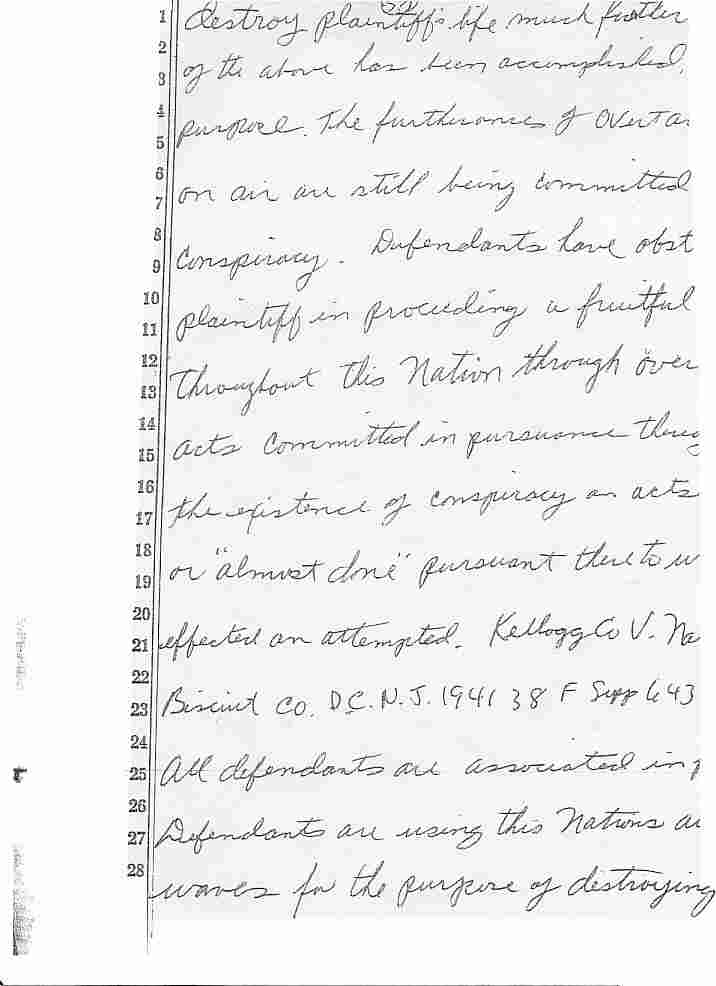 1 destroy plaintiff's life much further
2
3 of the above has been accomplished,
4
5 purpose. The furtherances of Overt a
6
7 on air are still being committed
8
9 Conspiracy. Defendants have obst
10
11 plaintiff in proceeding a fruitful
12
13 throughout this Nation through over
14
15 acts committed in pursuance there
16
17 the existence of conspiracy an acts
18
19 or "almost done" pursuant there to w
20
21 effected an attempted. Kellogg Co V. Na
22
23 Biscuit Co. D.C. N.J. 1941 38 F Supp 643
24
25 All defendants are associated in p
26
27 Defendants are using this Nations ai
28
waves for the purpose of destroying